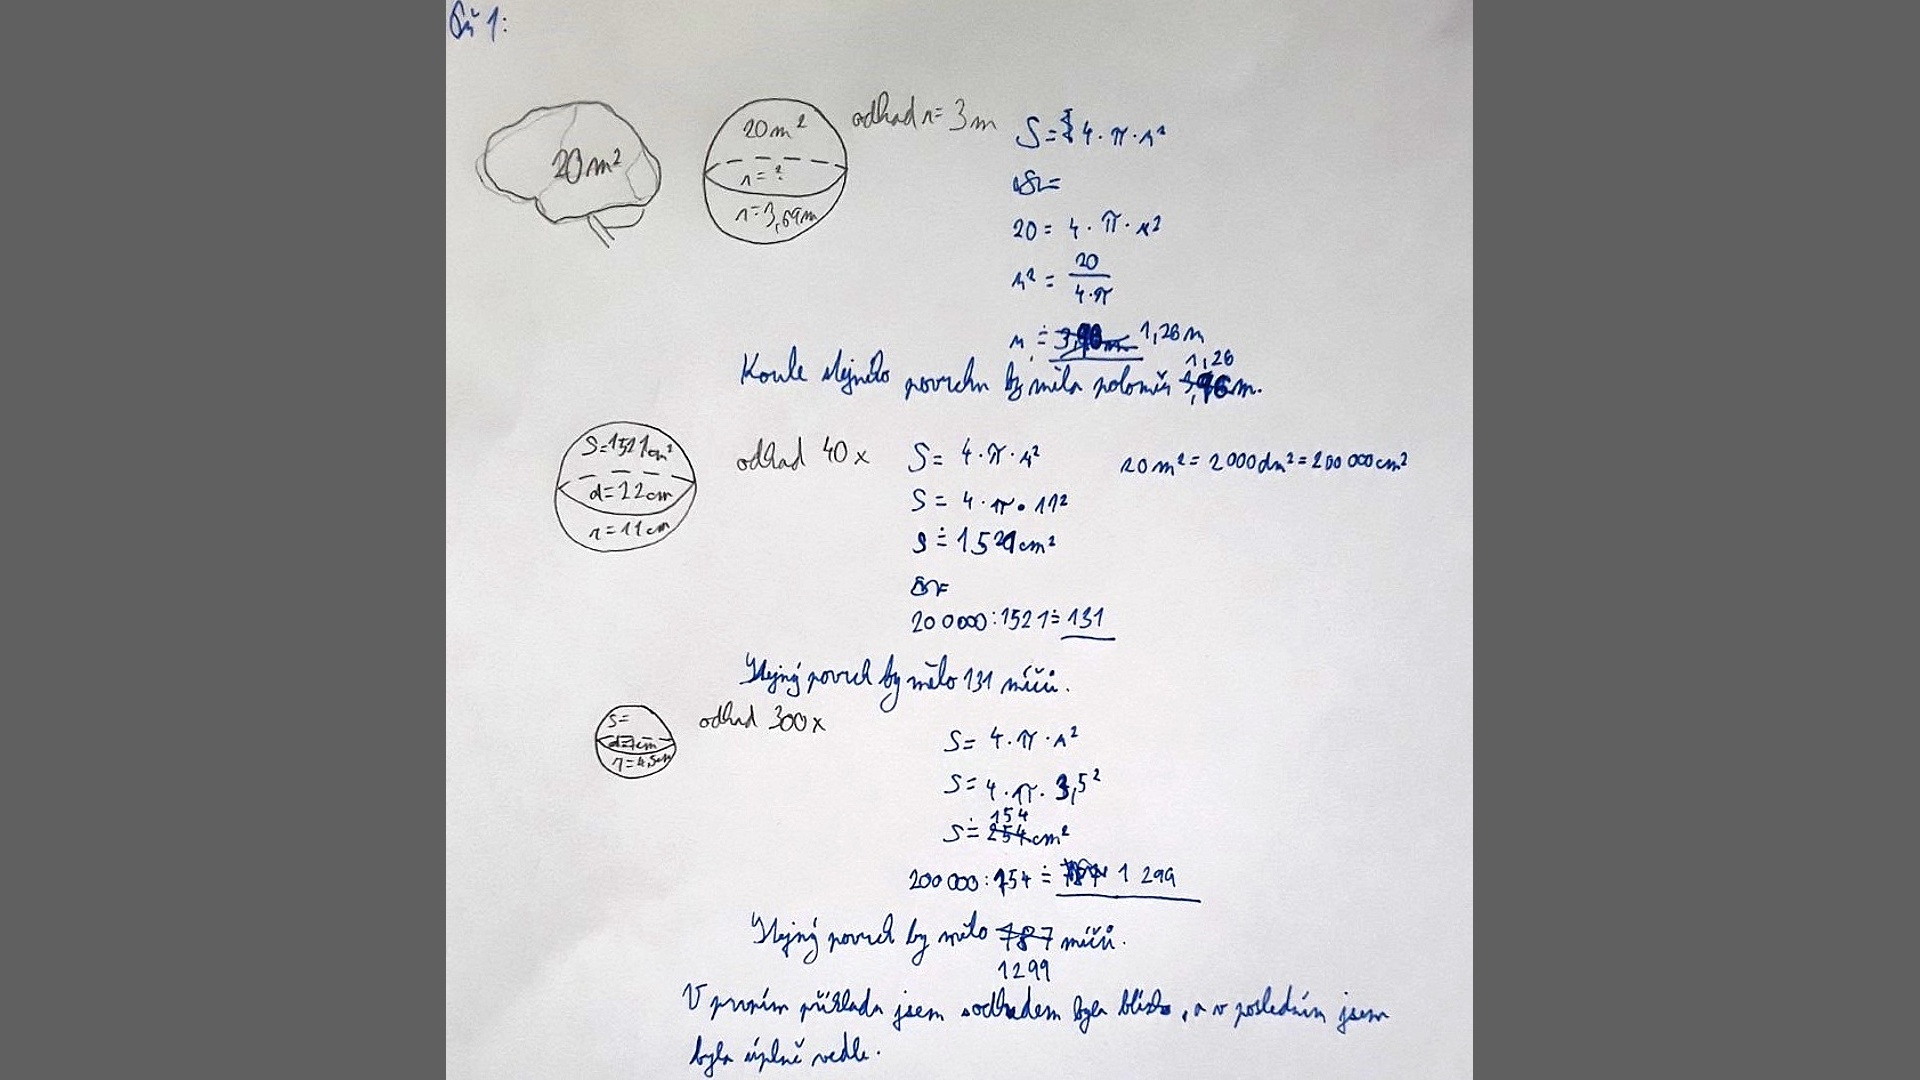 Př 1:
20m²
20m²
r=?
r=3,69m
odhad r= 3m
S= 4·π·r²
20= 4·π·r²
r² = 20/4·π
r ≐ 1,26m
1,26
Koule stejného povrchu by měla poloměr m.
S=1521cm²
d=22cm
r=11cm
odhad 40x
S= 4·π·r²
20m² = 2000dm² = 200 000cm²
S= 4·π·11²
S≐1521cm²
200000:1521≐131
Stejný povrch by mělo 131 míčů.
S=
d=7cm
r=4,5cm
odhad 300x
S= 4·π·r²
S= 4·π·3,5²
154
S≐ 254cm²
200 000:154 ≐ 1 299
Stejný povrch by mělo 787 míčů.
1299
V prvním příkladu jsem s odhadem byla blízko, a v posledním jsem
byla úplně vedle.